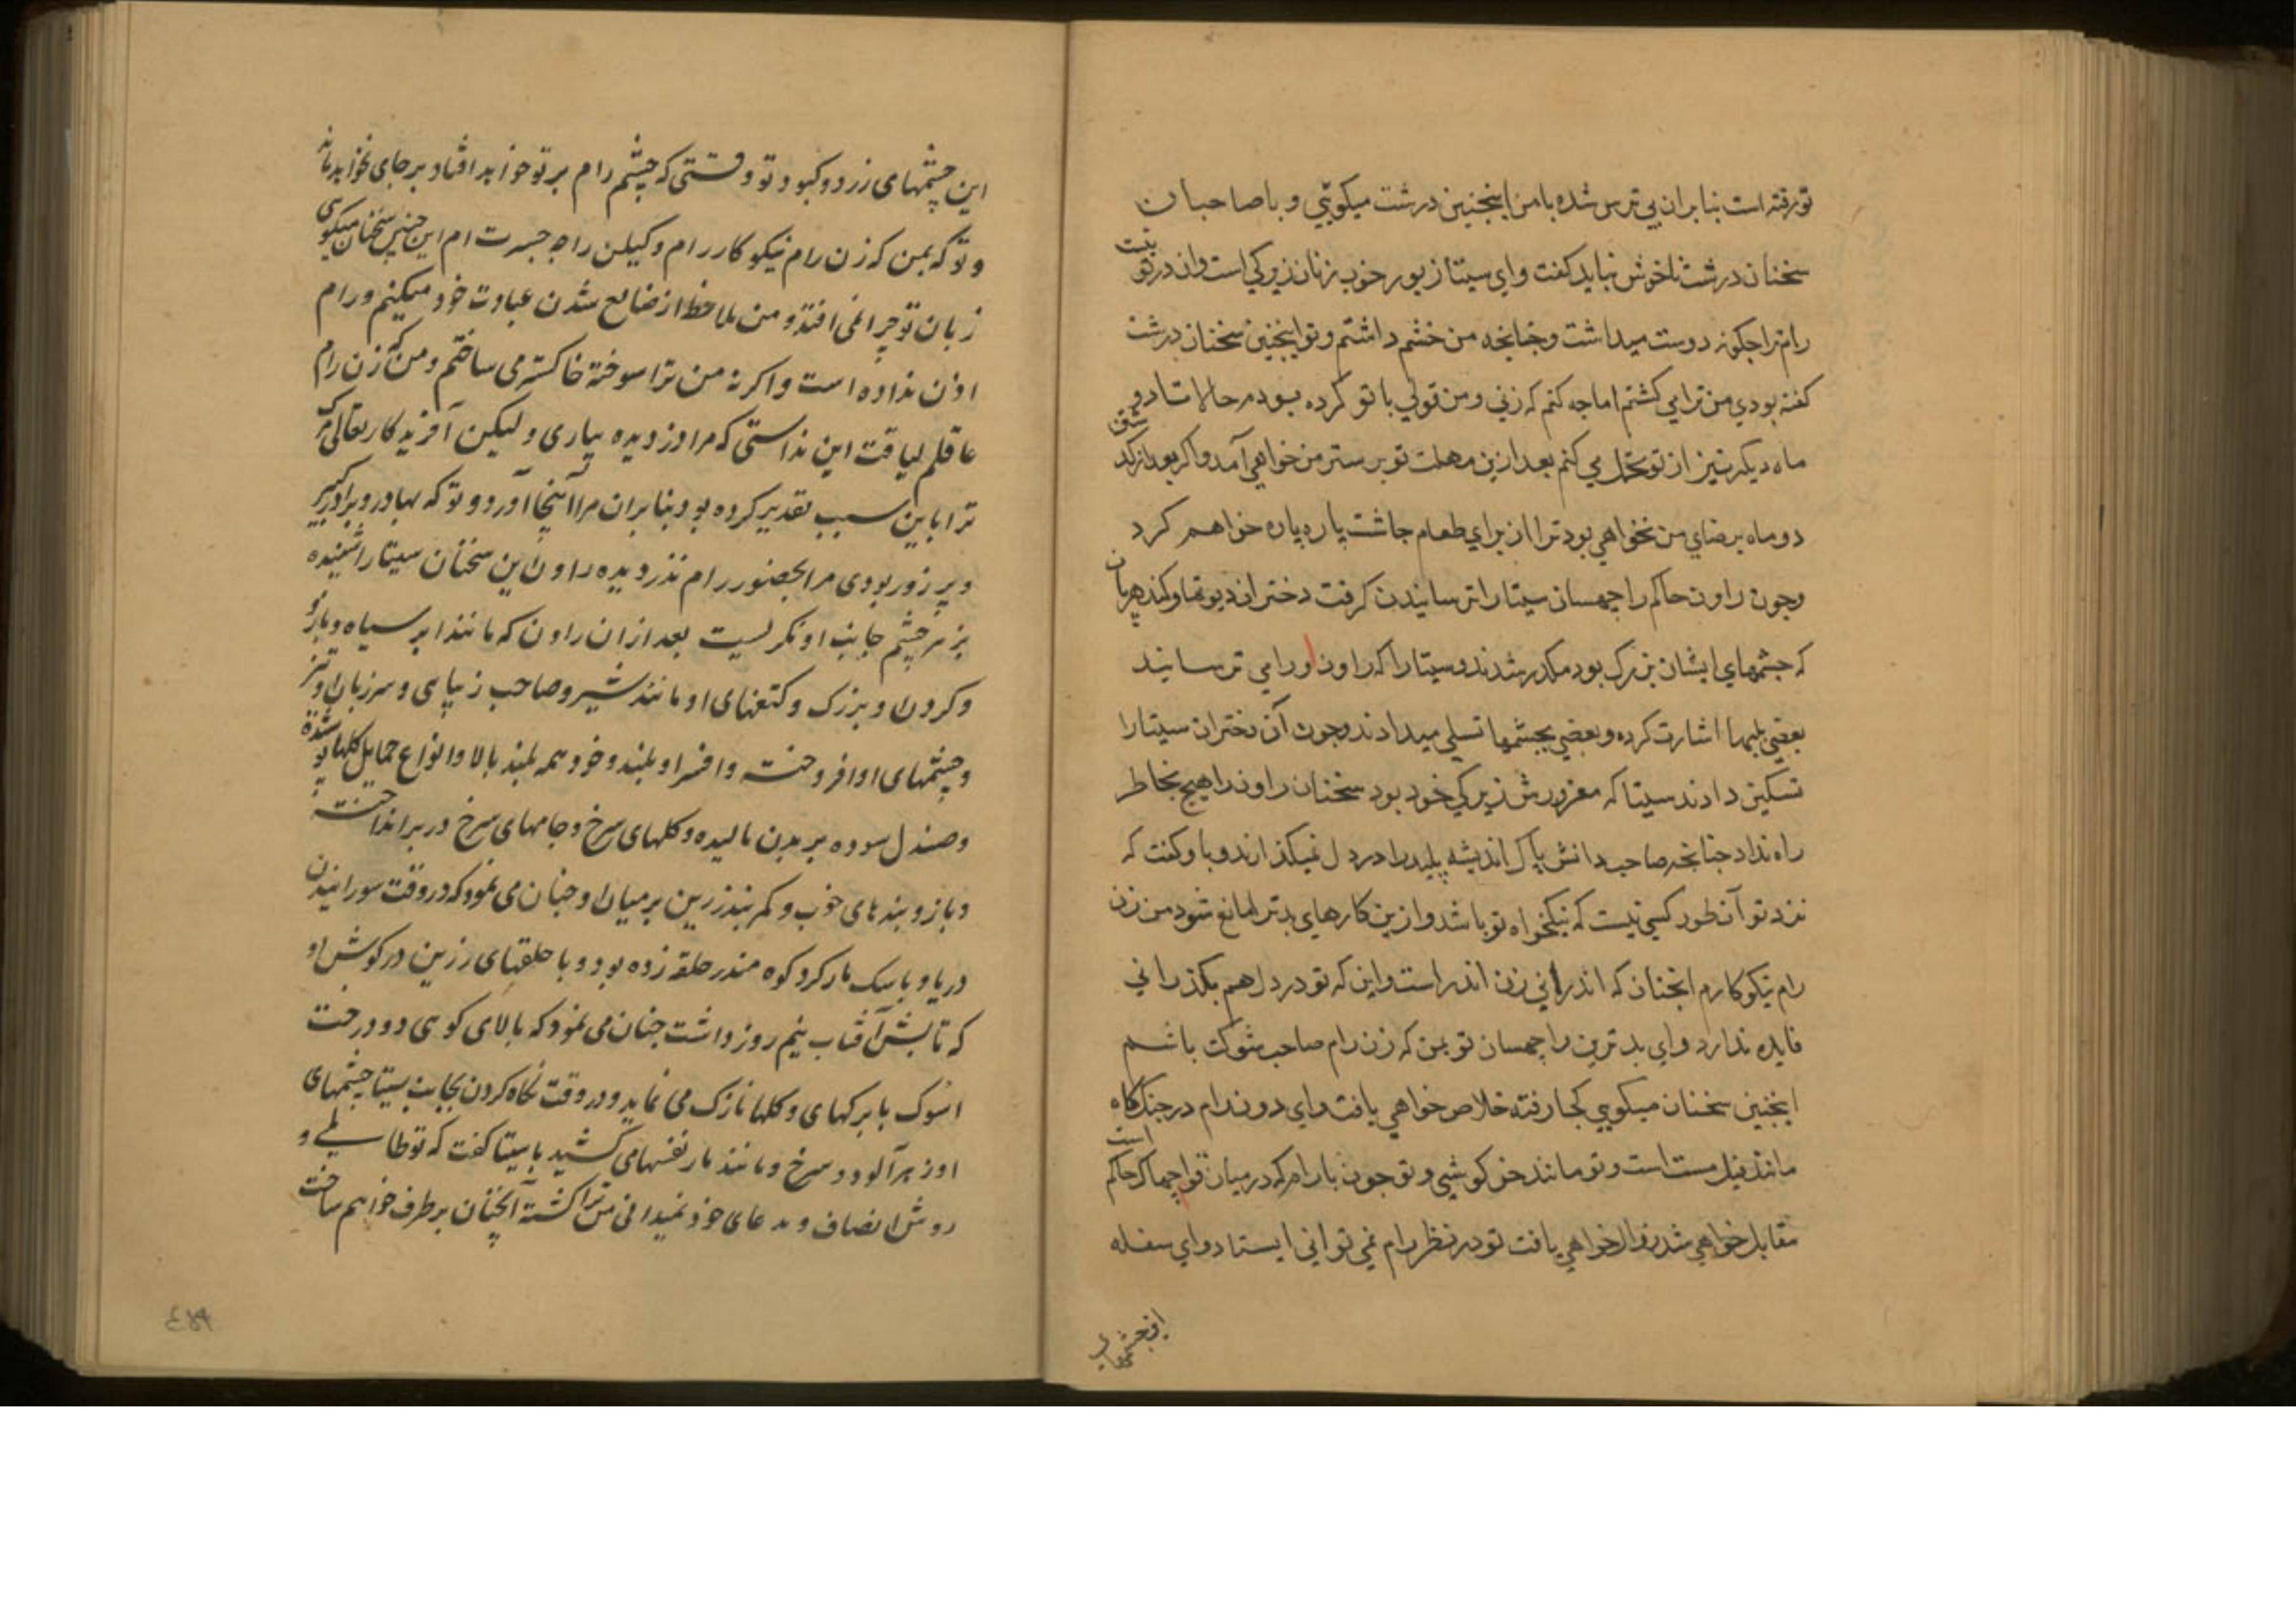 تو رفته است بنابران بی ترس شده بامن اینچنین درشت میکویی و با صاحبان
سخنان درشت ناخوش نباید کفت وای سیتا زیور خوب زنان زیرکی است وان در تو نیست
رام ترا چکونه دوست میداشت وچنانچه من خشم داشتم و تو اینچنین سخنان درشت
کفته بودی من ترا می کشتم اما چه کنم که زنی ومن قولی با تو کرده بودم حالا تا دو
ماه دیکر نیز از تو تحمل می کنم بعد ازین مهلت تو بر ستر من خواهی آمد و اکر بعد از
دو ماه برضای من نخواهی بود ترا از برای طعام چاشت پاره پاره خواهم کرد
وچون راون حاکم راچهسان سیتا را ترسانیدن کرفت دختران دیوتها و کندهربان
که چشمهای ایشان بزرک بود مکدر شدند و سیتا را که راون اورا می ترسانید
بعضی بلبها اشارت کرده و بعضی بچشمها تسلی میدادند وچون آن دختران سیتا را
تسکین دادند سیتا که مغرور زیرکی خود بود سخنان راون را هیچ بخاطر
راه نداد چنانچه صاحب دانش پاک اندیشه پلید را در دل نمیکذارند و با و کفت که
نزد تو آن طور کسی نیست که نیکخواه تو باشد و ازین کارهای بد ترا مانع شود من زن
رام نیکو کارم انچنان که اندرانی زن اندر است و این که تو در دل هم بکذرانی
فایده ندارد و ای بدترین راچهسان تو بمن که زن رام صاحب شوکت باشم
اینچنین سخنان میکویی کجا رفته خلاص خواهی یافت و ای دون رام در جنک کاه
مانند فیل مست است و تو مانند خرکوشی و تو چون با رام که در میان حاکم است
مقابل خواهی شد زوال خواهی یافت تو در نظر رام نمی توانی ایستاد و ای سفله
این چشمهای
این چشمهای زرد و کبود تو وقتی که چشم رام بر تو خواهد افتاد بر جای نخواهد ماند
و تو که بمن که زن رام نیکو کار رام و لیکن راجه جسرت ام این چنین سخنان میکوی
زبان تو چرا نمی افتد و من ملاحظه از ضایع شدن عبادت خود میکنم و رام
اذن نداده است و اکر نه من ترا سوخته خاکستر می ساختم و من که زن رام
عاقلم لیاقت این نداشتی که مرا دزدیده بیاری و لیکن آفریدکار تعالی مرک
ترا باین سبب تقدیر کرده بود بنابران مرا آنجا آورد و تو که بهادر و برادر کبیر
و پر زور بودی مرا بحضور رام ندزدیده راون این سخنان سیتا را شنیده
بزهر چشم جانب او نکریست بعد ازان راون که مانند ابر سیاه و بازو
و کردن او بزرک و کتفهای او مانند شیر و صاحب زیبایی و سر زبان او تیز
و چشمهای او افروخته و افسر او بلند و خود همه بلند بالا و انواع حمایل کلها پوشیده
و صندل سوده بر بدن مالیده و کلهای سرخ و جامهای سرخ در بر انداخته
و بازو بندهای خوب و کمربند زرین بر میان او چنان می نمود که در وقت شورانیدن
دریا و باسک مار کرد کوه مندر حلقه زده بود و با حلقهای زرین در کوش او
که تابش آفتاب نیم روز داشت چنان می نمود که بالای کوهی دو درخت
اشوک با برکهای و کلها نازک می نماید و در وقت نکاه کردن بجانب سیتا چشمهای
او زهرآلود و سرخ و مانند مار نفسها می کشید با سیتا کفت که تو طالمی و
روش انصاف و مدعای خود نمیدانی من ترا کشته آنچنان بر طرف خواهم ساخت